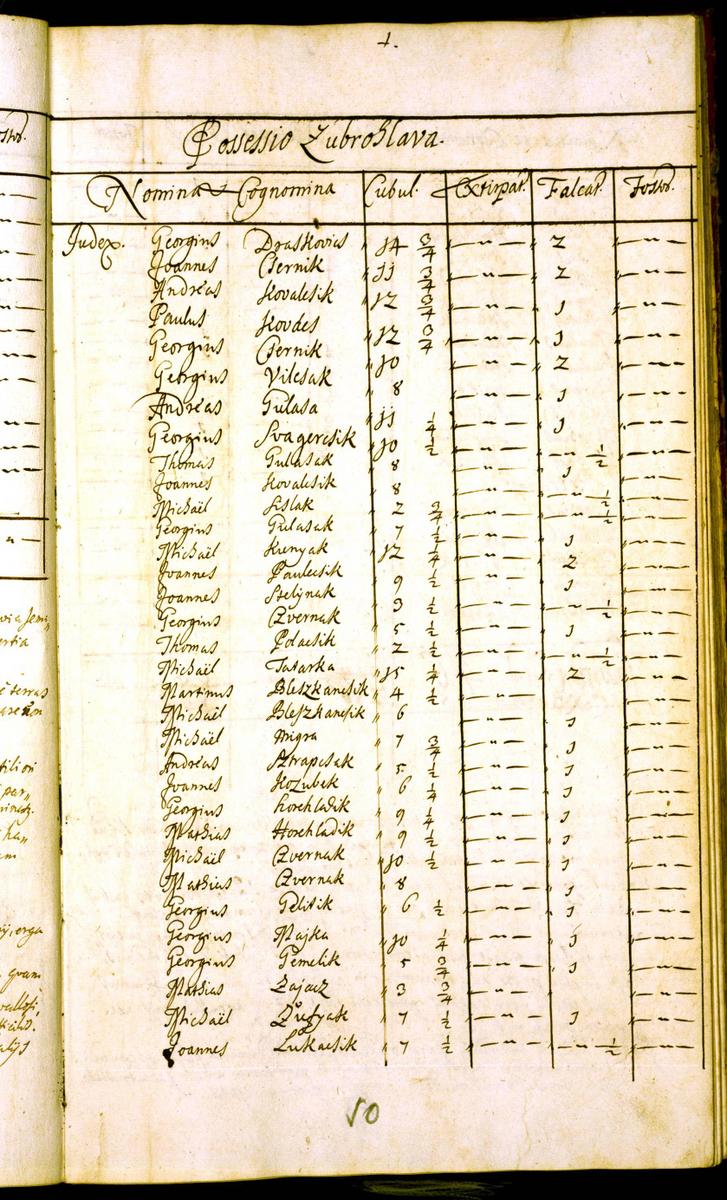 4.
Possessio Zubrohlava.
Nomina et Cognomina Cubul. Extirpat. Falcat.
Judex. Georgius Draskovics 14 3/4 " 2 "
Joannes Csernik 11 3/4 " 2 "
Andreas Kovalcsik 12 3/4 " 1 "
Paulus Kovács 12 3/4 " 1 "
Georgius Csernik 10 " 2 "
Georgius Vilcsak 8 " 1 "
Andreas Gulasa 11 1/4 " 1 "
Georgius Svagercsik 10 1/2 " " 1/2 "
Thomas Gulasak 8 " 1 "
Joannes Kovalcsik 8 " " 1/2 "
Michaël Sislak 2 " " 1/2 "
Georgius Gulasak 7 1/2 " 1 "
Michaël Kunyak 12 1/4 " 2 "
Joannes Paulcsik 9 1/2 " 1 "
Joannes 3 1/2 " " 1/2 "
Georgius Czvernak 5 1/2 " 1 "
Thomas Polacsik 2 1/2 " " 1/2 "
Michaël Tatarka 15 1/4 " 2 "
Martinus Bleszkancsik 4 1/2 "
Michaël Bleszkancsik 6 " 1 "
Michaël Migra 7 3/4 " 1 "
Andreas Sztrapcsak 5 1/2 " 1 "
Joannes Kozubek 6 1/4 " 1 "
Georgius Horehladik 9 1/4 " 1 "
Mathias Horehladik 9 1/2 " 1 "
Michaël Czvernak 10 1/2 " 1 "
Mathias Czvernak 8 " 1 "
Georgius 6 1/2 " 1 "
Georgius Majka 10 1/4 " 1 "
Georgius Gemelik 5 3/4 " 1 "
Mathias Zajacz 3 3/4 " " "
Michaël 7 1/2 " 1 "
Joannes Lukacsik 7 1/2 " " 1/2 "
50